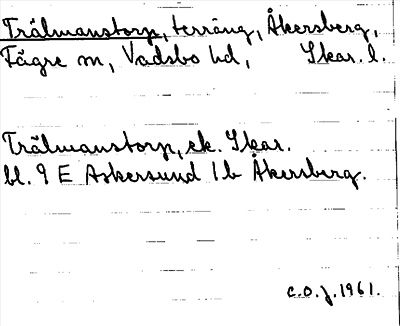 Trälmanstorp, terräng, Åkersberg,
Fägre sn, Vadsbo hd, Skar. l.
Trälmanstorp, ek. Skar.
bl. 9 E Askersund 1b Åkersberg.
c.o.j. 1961.